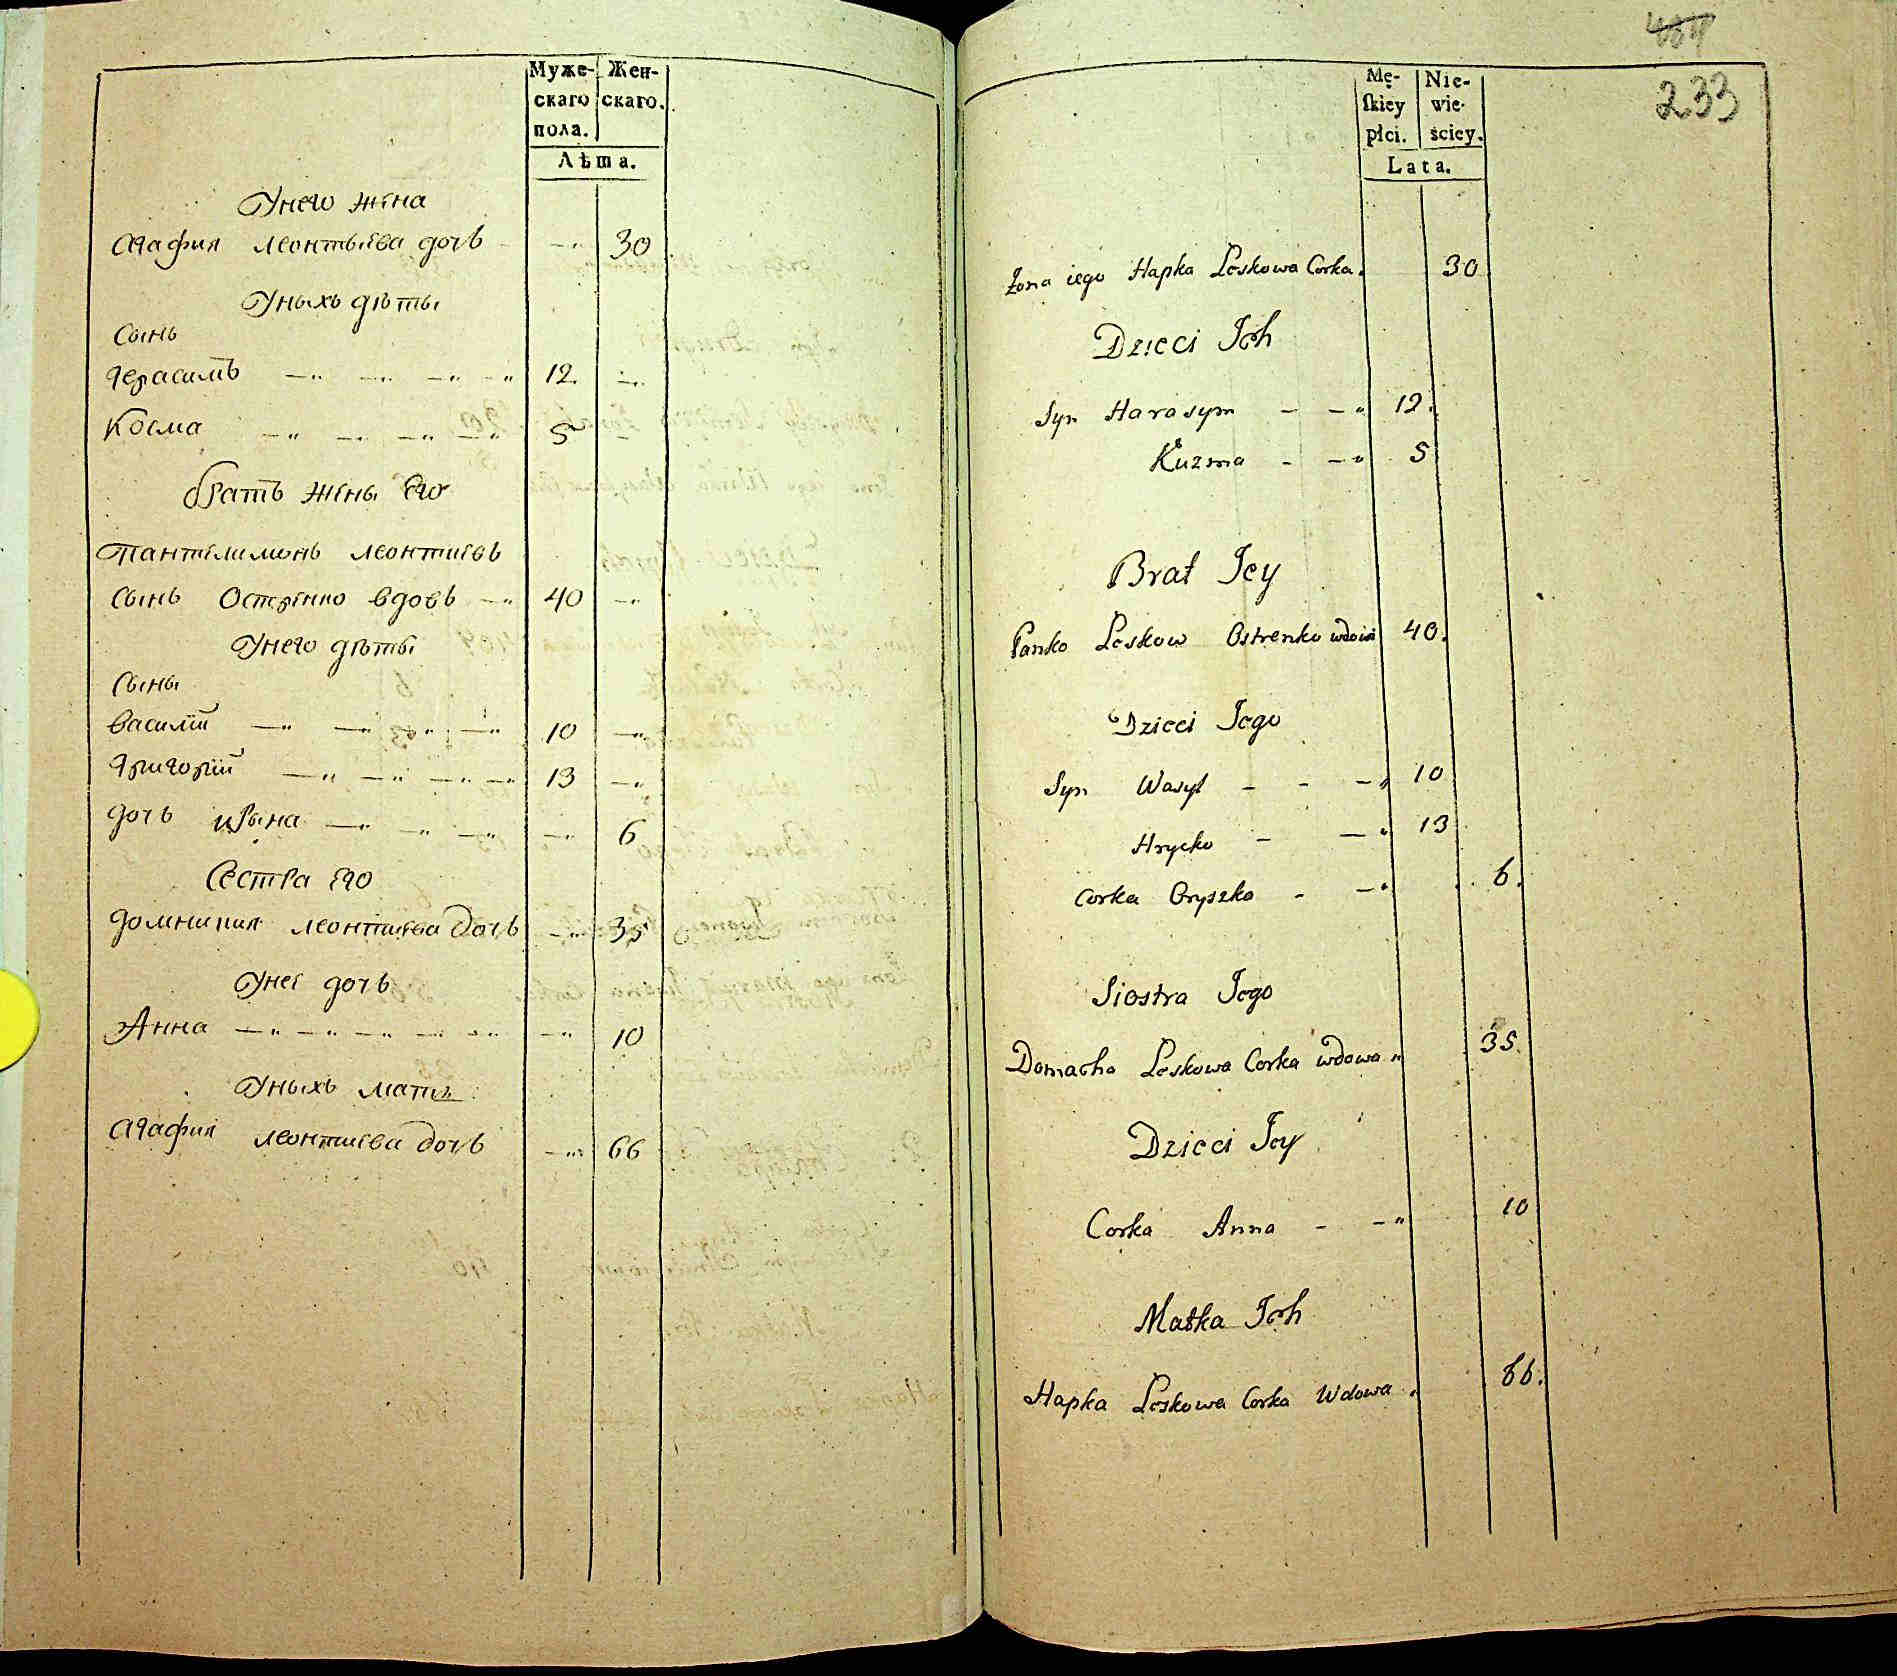 Муже- Жен-
скаго скаго.
пола.
Лѣта.
Унего жена
Агафия леонтьева дочь —" 30
Уныхъ дѣти
Сынъ
Герасимъ —" —" —" —" 12. —"
Косма —" —" —" —" 5
братъ жены его
Пантелимонъ леонтиевъ
сынъ Остренко вдовъ —" 40 —"
Унего дѣти
Сыны
василïй —" —" —" —" 10 —"
Григорïй —" —" —" —" 13 —"
дочь —" —" —" —" 6
Сестра его
домникия леонтиева дочь —" 35
Унеї дочь
Анна —" —" —" —" —" —" 10
Уныхъ мать
Агафия леонтиева дочь —" 66
233
Mę- Nie-
skiey wie-
płci. ściey.
Lata.
Żona iego Hapka Leskowa Corka. 30
Dzieci Ich
Syn Harasym — —" 12.
Kuzma — —" 5
Brat Jey
Panko Leskow Ostrenko wdowi 40.
Dzieci Jego
Syn Wasyl — — —" 10
Hrycko — —" 13
Corka Oryszka — —" 6.
Siostra Jego
Domacha Leskowa Corka wdowa " 35.
Dzieci Jey
Corka Anna — —" 10
Matka Ich
Hapka Leskowa Corka Wdowa . 66.